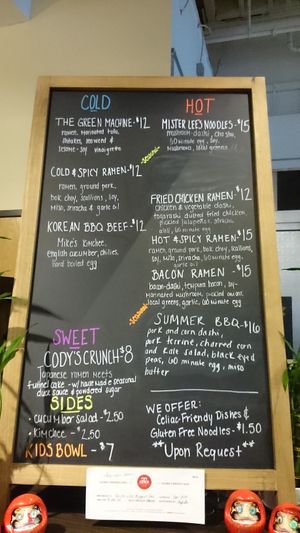 COLD
THE GREEN MACHINE-$12
ramen, marinated tofu,
shiitakes, seaweed &
sesame-soy vinaigrette
COLD & SPICY RAMEN-$12
ramen, ground pork,
bok choy, scallions, soy,
miso, sriracha & garlic oil
KOREAN BBQ BEEF-$12
Mike's Kimchee,
english cucumber, chilies,
hard boiled egg
SWEET
CODY'S CRUNCH $8
Japanese ramen meets
funnel cake - w/ house made seasonal
sauce & powdered sugar
SIDES
-cucumber salad-$2.50
-Kimchee - $2.50
KIDS BOWL - $7
HOT
MISTER LEE'S NOODLES-$15
mushroom-dashi, chashu,
60 minute egg, soy,
mushrooms, local greens
-seasonal-
FRIED CHICKEN RAMEN-$12
chicken & vegetable dashi,
togarashi dusted fried chicken,
pickled jalapeños, sriracha
aioli, 60 minute egg
HOT & SPICY RAMEN-$15
ramen, ground pork, bok choy, scallions,
soy, miso, sriracha, 60 minute egg,
garlic oil
BACON RAMEN -$15
bacon-dashi, tempura bacon, soy-
marinated mushroom, pickled onion,
local greens, garlic, 60 minute egg
-seasonal-
SUMMER BBQ-$16
pork and corn dashi,
pork terrine, charred corn
and kale salad, black eyed
peas, 60 minute egg, miso
butter
WE OFFER:
Celiac-Friendly Dishes &
Gluten Free Noodles -$1.50
**Upon Request**